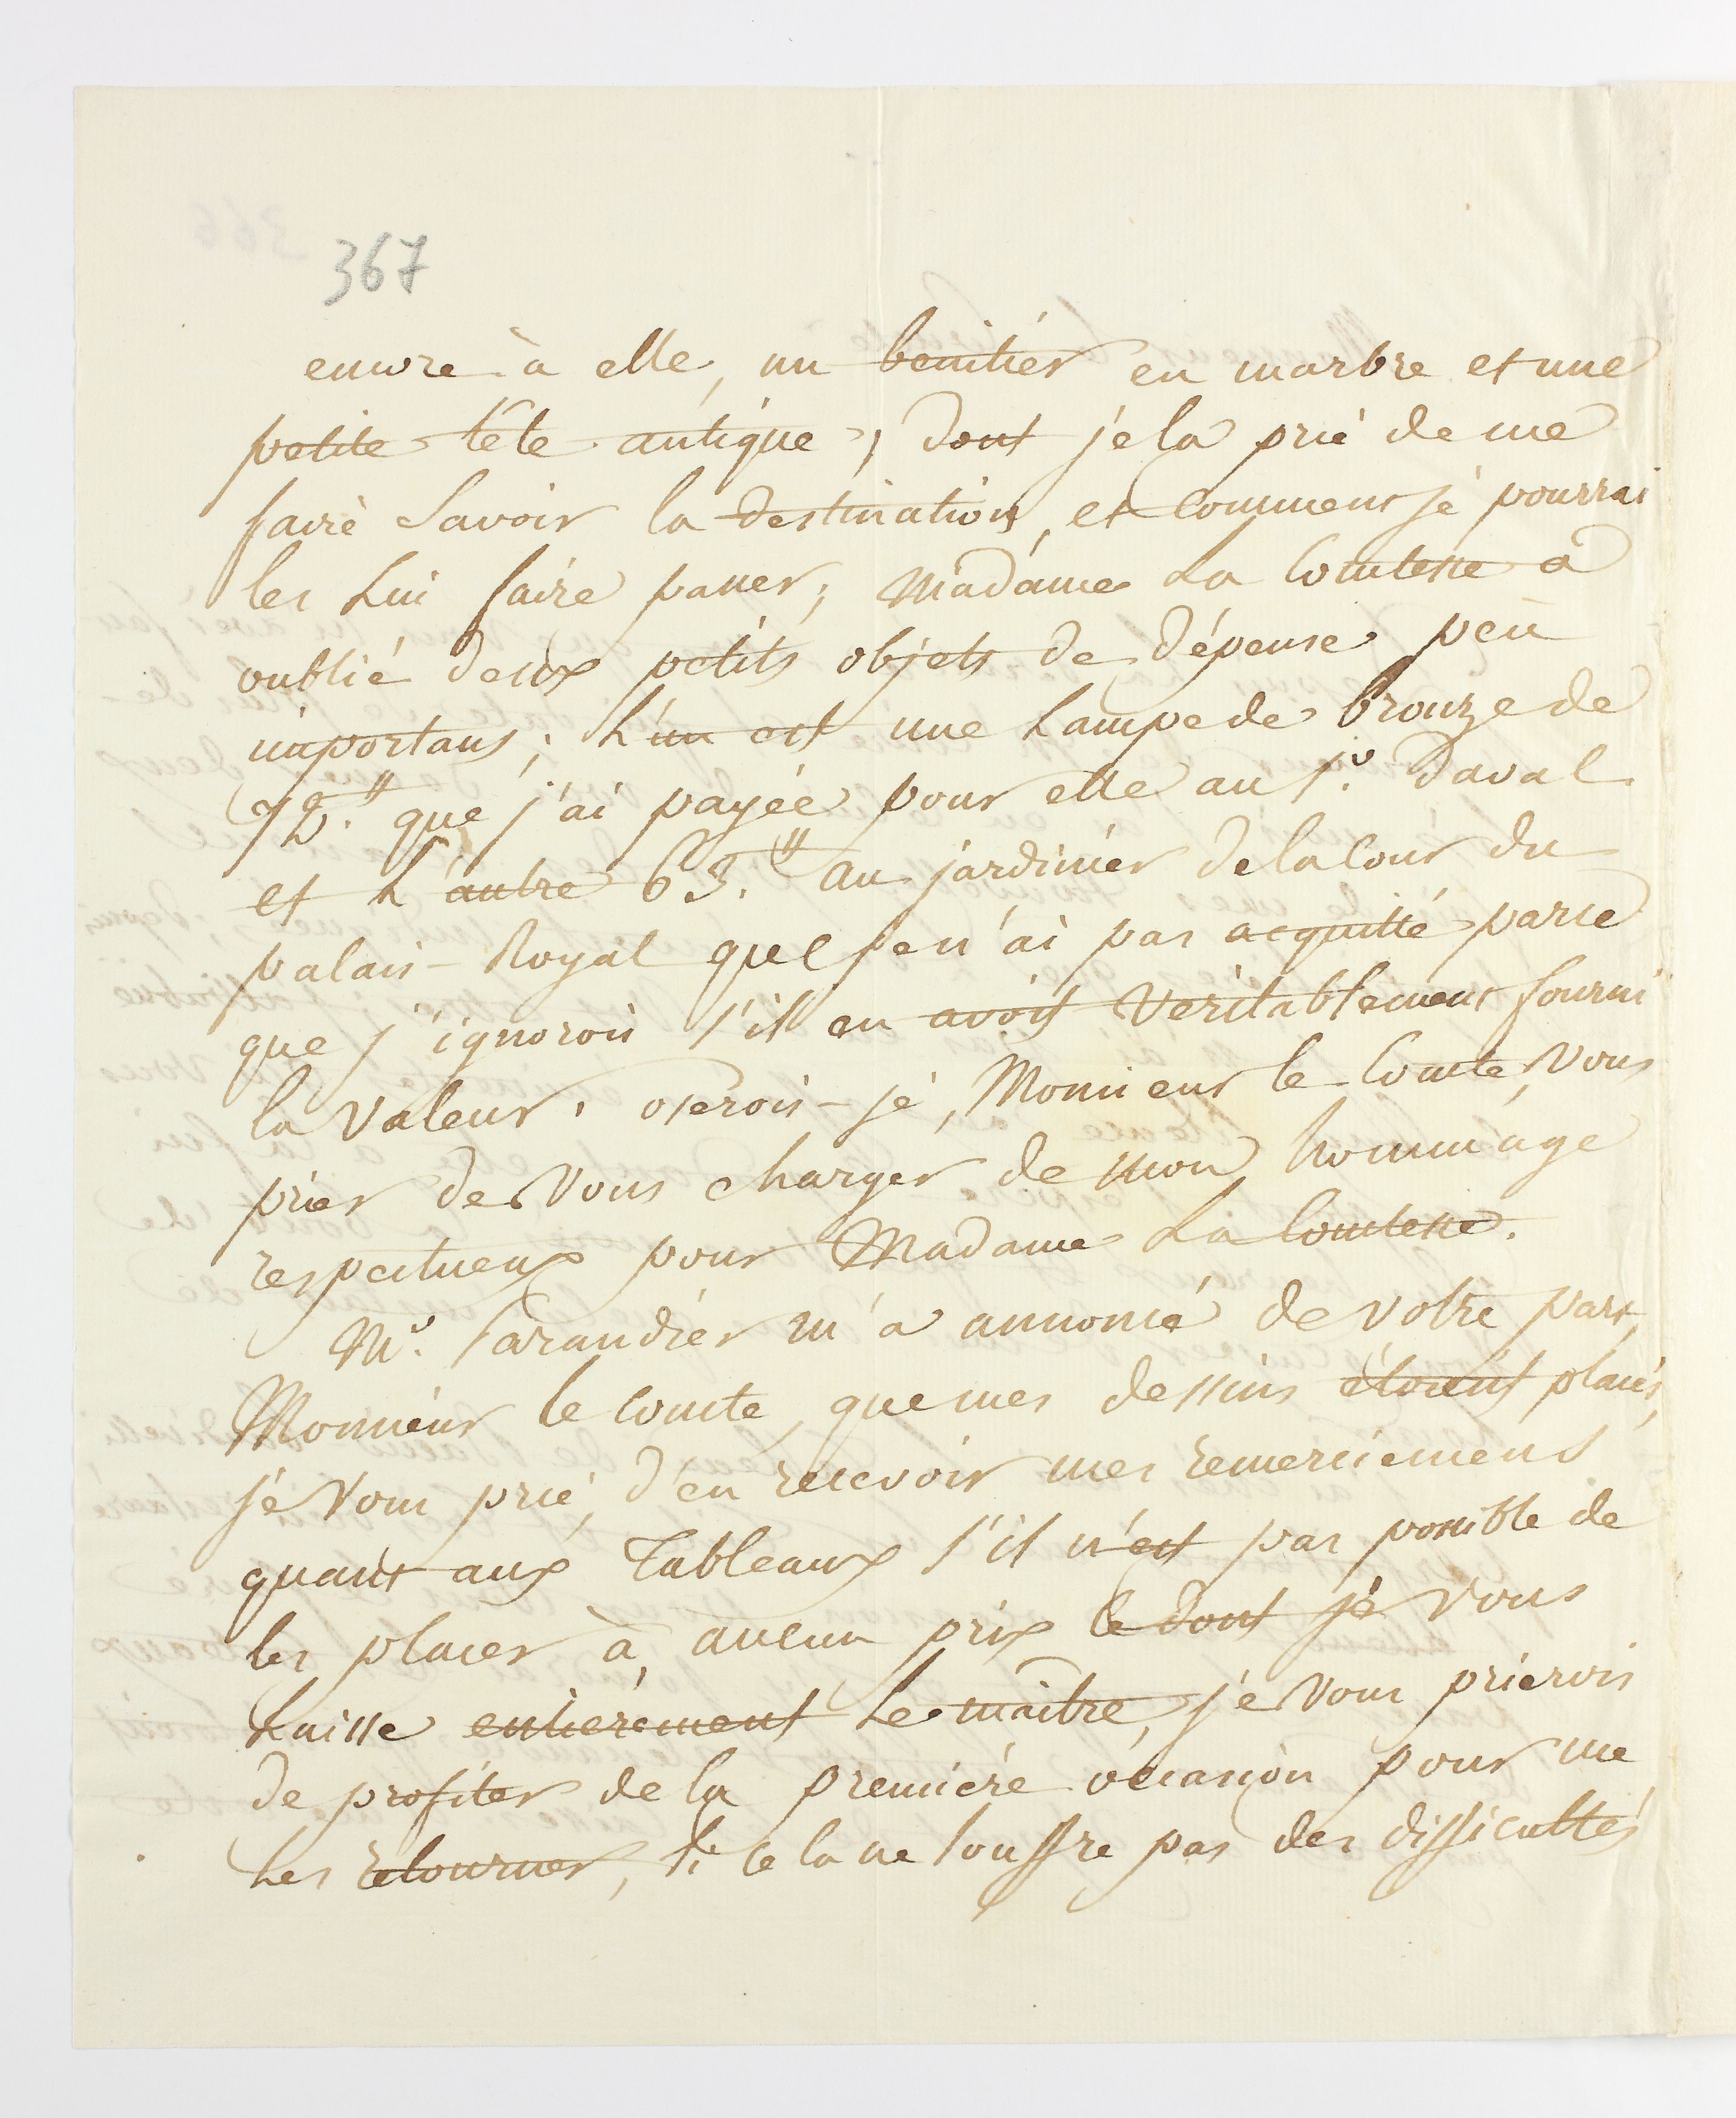 367
encore à elle, un benitier en marbre et une
petite tête antique, dont je la prie de me
faire savoir la destination, et comment je pourrai
les Lui faire passer; Madame La Comtesse a
oublié deux petits objets de dépense peu
importans; L'un est une Lampe de bronze de
72.# que j'ai payée pour elle au Sr. Daval
et L'autre 63.# au jardinier de la Cour du
palais-Royal que je n'ai pas acquitté parce
que j'ignorois s'il en avoit veritablement fourni
la valeur. oserois-je, Monsieur le Comte, vous
prier de vous charger de mon hommage
respectueux pour Madame La Comtesse.
Mr. Sarandier m'a annoncé de votre part,
Monsieur le Comte, que mes dessins étoient placés,
je vous prie, d'en recevoir mes remerciemens
quant aux Tableaux s'il n'est pas possible de
les placer à aucun prix ce dont je vous
Laisse entierement Le maître, je vous prierois
de profiter de la premiere occasion pour me
Les retourner, si cela ne souffre pas des difficultés